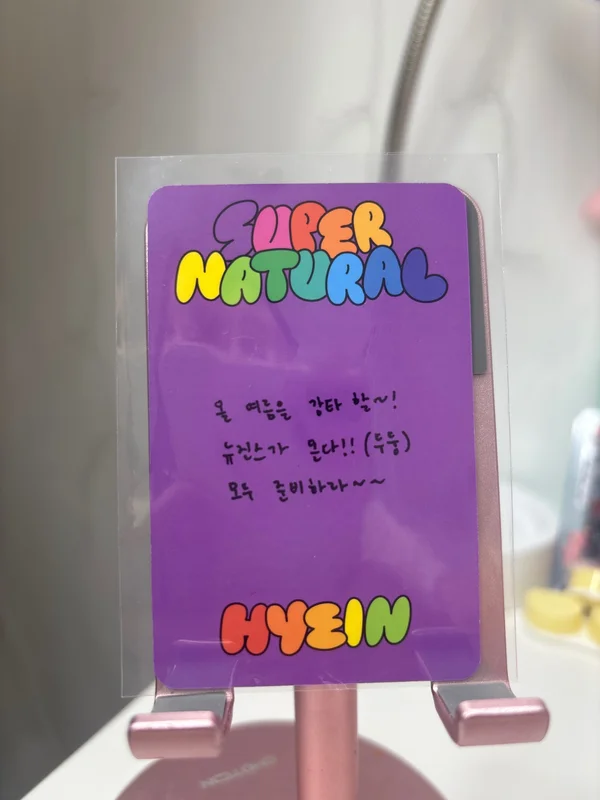 SUPER
NATURAL
올 여름을 강타 할~!
뉴진스가 온다!! (두둥)
모두 준비하라~~
HYEIN